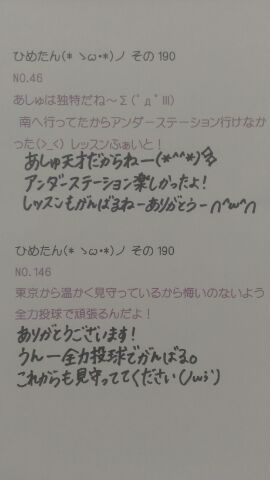 ひめたん(* ゝω･*)ノ その190
NO.46
あしゅは独特だね～Σ(ﾟдﾟlll)
南へ行ってたからアンダーステーション行けなか
った(>_<) レッスンふぁいと！
あしゅ天才だからねー(*^^*)
アンダーステーション楽しかったよ！
レッスンもがんばるねーありがとうー∩^ω^∩
ひめたん(* ゝω･*)ノ その190
NO.146
東京から温かく見守っているから悔いのないよう
全力投球で頑張るんだよ！
ありがとうございます！
うんー全力投球でがんばる。
これからも見守っててください(ﾉωﾞ)